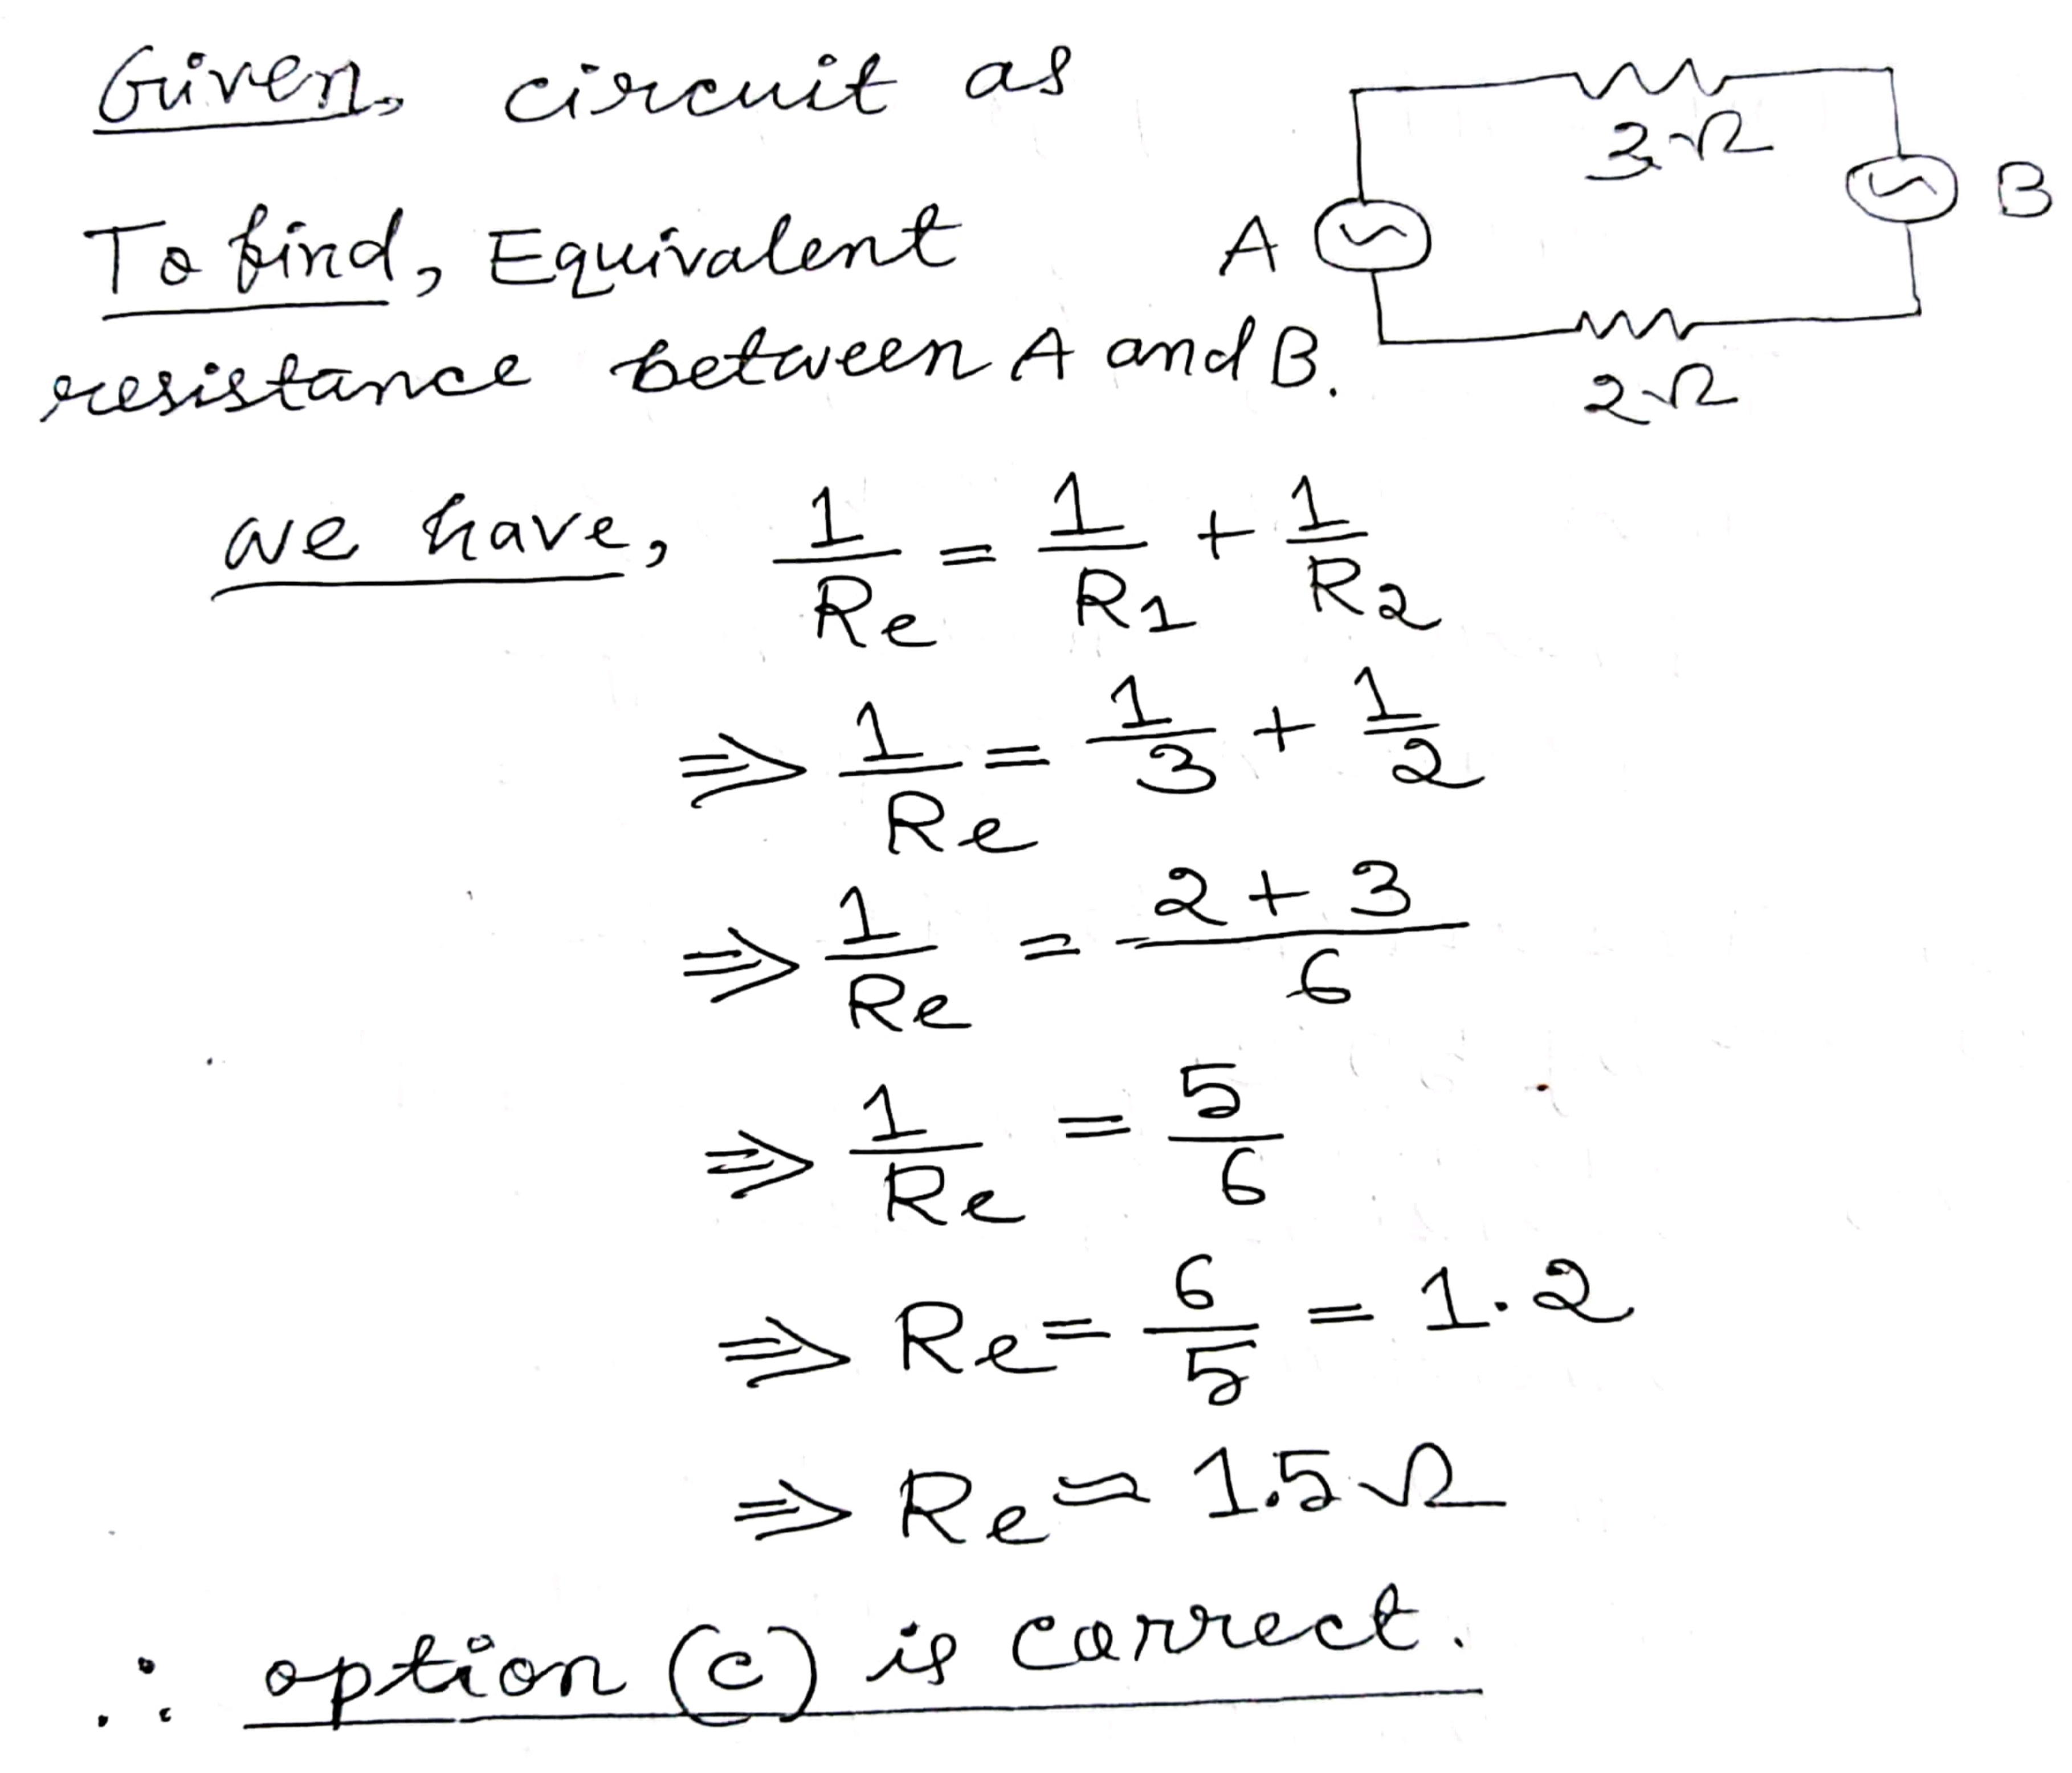 Given, circuit as
3Ω
A
B
To find, Equivalent
resistance between A and B.
2Ω
we have, 1/Re = 1/R1 + 1/R2
⇒ 1/Re = 1/3 + 1/2
⇒ 1/Re = 2 + 3/6
⇒ 1/Re = 5/6
⇒ Re = 6/5 = 1.2
⇒ Re ≈ 1.5Ω
∴ option (c) is correct.